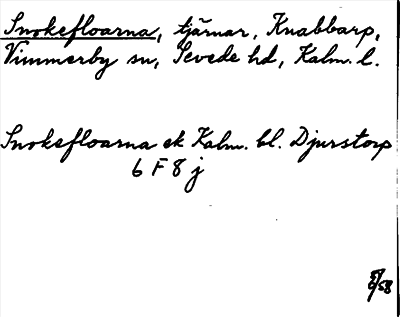 Snokefloarna, tjärnar, Knabbarp,
Vimmerby sn, Sevede hd, Kalm. l.
Snokefloarna ek Kalm. bl. Djurstorp
6 F 8 j